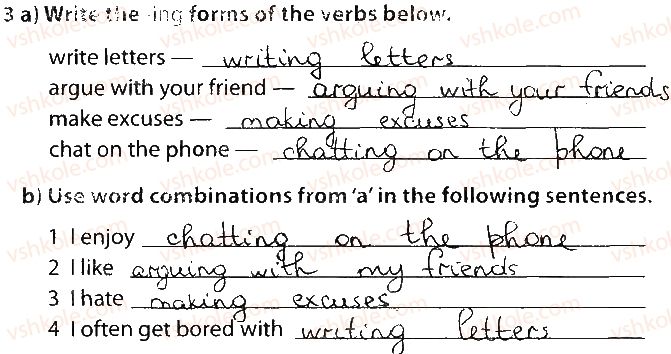 3 a) Write the -ing forms of the verbs below.
write letters — writing letters
argue with your friend — arguing with your friends
make excuses — making excuses
chat on the phone — chatting on the phone
b) Use word combinations from 'a' in the following sentences.
1 I enjoy chatting on the phone
2 I like arguing with my friends
3 I hate making excuses.
4 I often get bored with writing letters